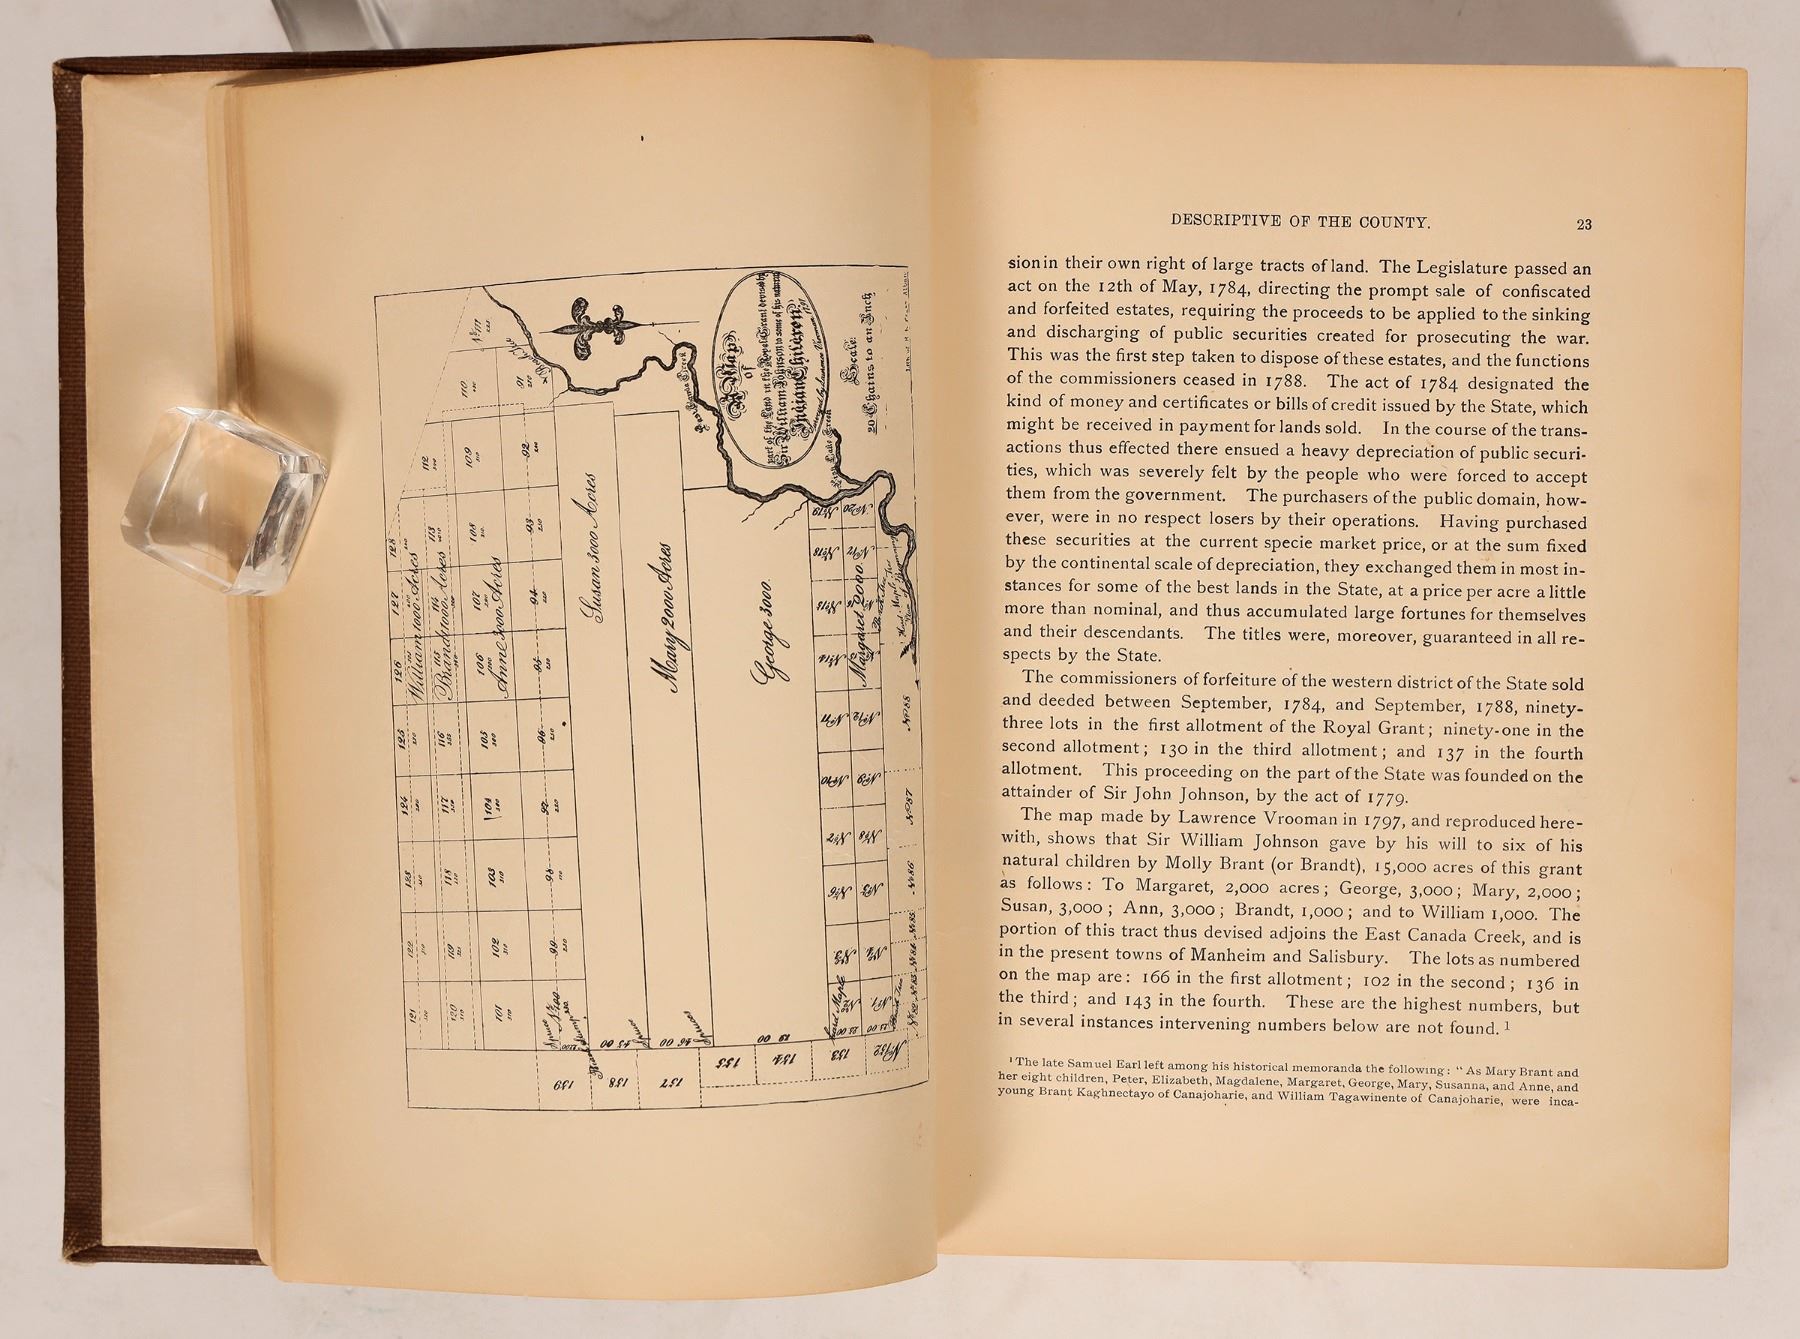 A Map
of
part of the Land in the Royal Grant devised by
Sir William Johnson to some of his natural
Indian Children.
Surveyed by Lawrence Vrooman
Scale.
20 Chains to an Inch
East Canada Creek
William 1000 Acres
Brandt 1000 Acres
Anne 3000 Acres
Susan 3000 Acres
Mary 2000 Acres
George 3000.
Margaret 2000.
128
127
126
125
124
123
122
121
112
113
114
115
116
117
118
119
120
110
109
108
107
106
105
104
103
102
101
91
92
93
94
95
96
97
98
99
139
138
137
135
134
133
No 132
No 88
No 87
No 86
No 85
No 84
Spruce
Spruce
DESCRIPTIVE OF THE COUNTY. 23
sion in their own right of large tracts of land. The Legislature passed an
act on the 12th of May, 1784, directing the prompt sale of confiscated
and forfeited estates, requiring the proceeds to be applied to the sinking
and discharging of public securities created for prosecuting the war.
This was the first step taken to dispose of these estates, and the functions
of the commissioners ceased in 1788. The act of 1784 designated the
kind of money and certificates or bills of credit issued by the State, which
might be received in payment for lands sold. In the course of the trans-
actions thus effected there ensued a heavy depreciation of public securi-
ties, which was severely felt by the people who were forced to accept
them from the government. The purchasers of the public domain, how-
ever, were in no respect losers by their operations. Having purchased
these securities at the current specie market price, or at the sum fixed
by the continental scale of depreciation, they exchanged them in most in-
stances for some of the best lands in the State, at a price per acre a little
more than nominal, and thus accumulated large fortunes for themselves
and their descendants. The titles were, moreover, guaranteed in all re-
spects by the State.
The commissioners of forfeiture of the western district of the State sold
and deeded between September, 1784, and September, 1788, ninety-
three lots in the first allotment of the Royal Grant; ninety-one in the
second allotment; 130 in the third allotment; and 137 in the fourth
allotment. This proceeding on the part of the State was founded on the
attainder of Sir John Johnson, by the act of 1779.
The map made by Lawrence Vrooman in 1797, and reproduced here-
with, shows that Sir William Johnson gave by his will to six of his
natural children by Molly Brant (or Brandt), 15,000 acres of this grant
as follows: To Margaret, 2,000 acres; George, 3,000; Mary, 2,000;
Susan, 3,000; Ann, 3,000; Brandt, 1,000; and to William 1,000. The
portion of this tract thus devised adjoins the East Canada Creek, and is
in the present towns of Manheim and Salisbury. The lots as numbered
on the map are: 166 in the first allotment; 102 in the second; 136 in
the third; and 143 in the fourth. These are the highest numbers, but
in several instances intervening numbers below are not found. 1
1 The late Samuel Earl left among his historical memoranda the following: " As Mary Brant and
her eight children, Peter, Elizabeth, Magdalene, Margaret, George, Mary, Susanna, and Anne, and
young Brant Kaghnectayo of Canajoharie, and William Tagawinente of Canajoharie, were inca-